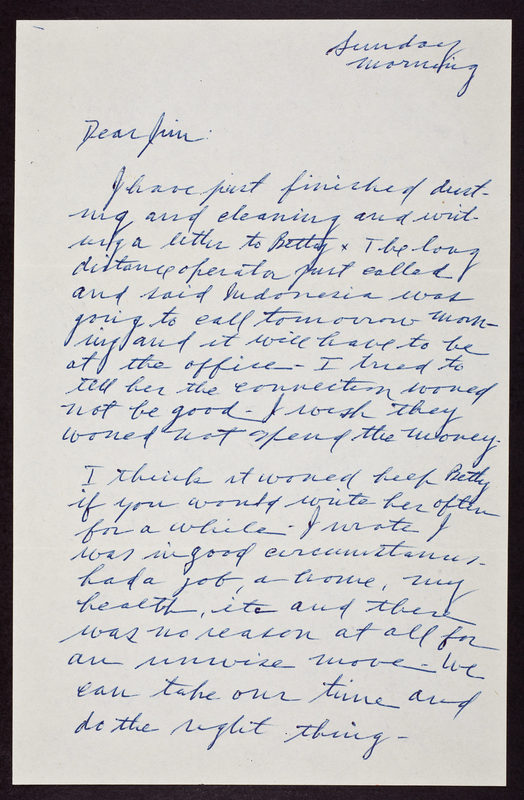 Sunday
morning
Dear Jim:
I have just finished dust-
ing and cleaning and writ-
ing a letter to Betty & The long
distance operator just called
and said Indonesia was
going to call tomorrow morn-
ing and it will have to be
at the office - I tried to
tell her the connection woned
not be good - I wish they
woned not spend the money.
I think it woned help Betty
if you would write her often
for a while - I wrote I
was in good circumstances -
had a job, a home, my
health, etc and there
was no reason at all for
an unwise move - We
can take our time and
do the right thing -